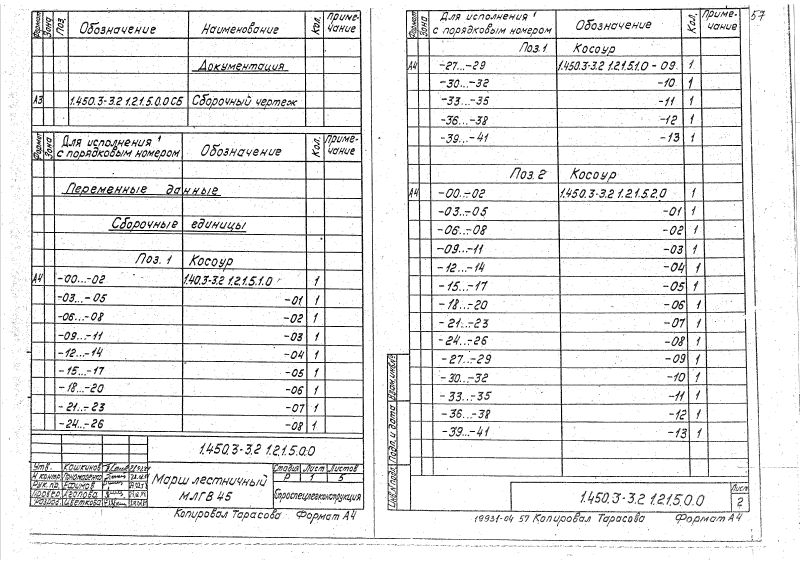 Формат Зона Поз. Обозначение Наименование Кол. Приме-чание
Документация
А3 1.450.3-3.2 1.21.5.0.0 СБ Сборочный чертеж
Формат Зона Для исполнения с порядковым номером Обозначение Кол. Приме-чание
Переменные данные
Сборочные единицы
Поз. 1 Косоур
А4 -00...-02 1.40.3-3.2 1.21.5.1.0 1
-03...-05 -01 1
-06...-08 -02 1
-09...-11 -03 1
-12...-14 -04 1
-15...-17 -05 1
-18...-20 -06 1
-21...-23 -07 1
-24...-26 -08 1
1.450.3-3.2 1.21.5.0.0
Утв. Кашкинов
Н контр
Рук. гр. Ефимов
Провер. Агапова
Разраб. Цветкова
Марш лестничный МЛГВ 45
Стадия Лист Листов
Р 1 5
Гипроспецлегконструкция
Копировал Тарасова Формат А4
57
Формат Зона Для исполнения с порядковым номером Обозначение Кол. Приме-чание
Поз.1 Косоур
А4 -27...-29 1.450.3-3.2 1.21.5.1.0-09 1
-30...-32 -10 1
-33...-35 -11 1
-36...-38 -12 1
-39...-41 -13 1
Поз. 2 Косоур
А4 -00...-02 1.450.3-3.2 1.21.5.2.0 1
-03...-05 -01 1
-06...-08 -02 1
-09...-11 -03 1
-12...-14 -04 1
-15...-17 -05 1
-18...-20 -06 1
-21...-23 -07 1
-24...-26 -08 1
-27...-29 -09 1
-30...-32 -10 1
-33...-35 -11 1
-36...-38 -12 1
-39...-41 -13 1
Инв.№подл. Подп. и дата Взам.инв.№
1.450.3-3.2 1.21.5.0.0
Лист
2
19931-04 57 Копировал Тарасова Формат А4